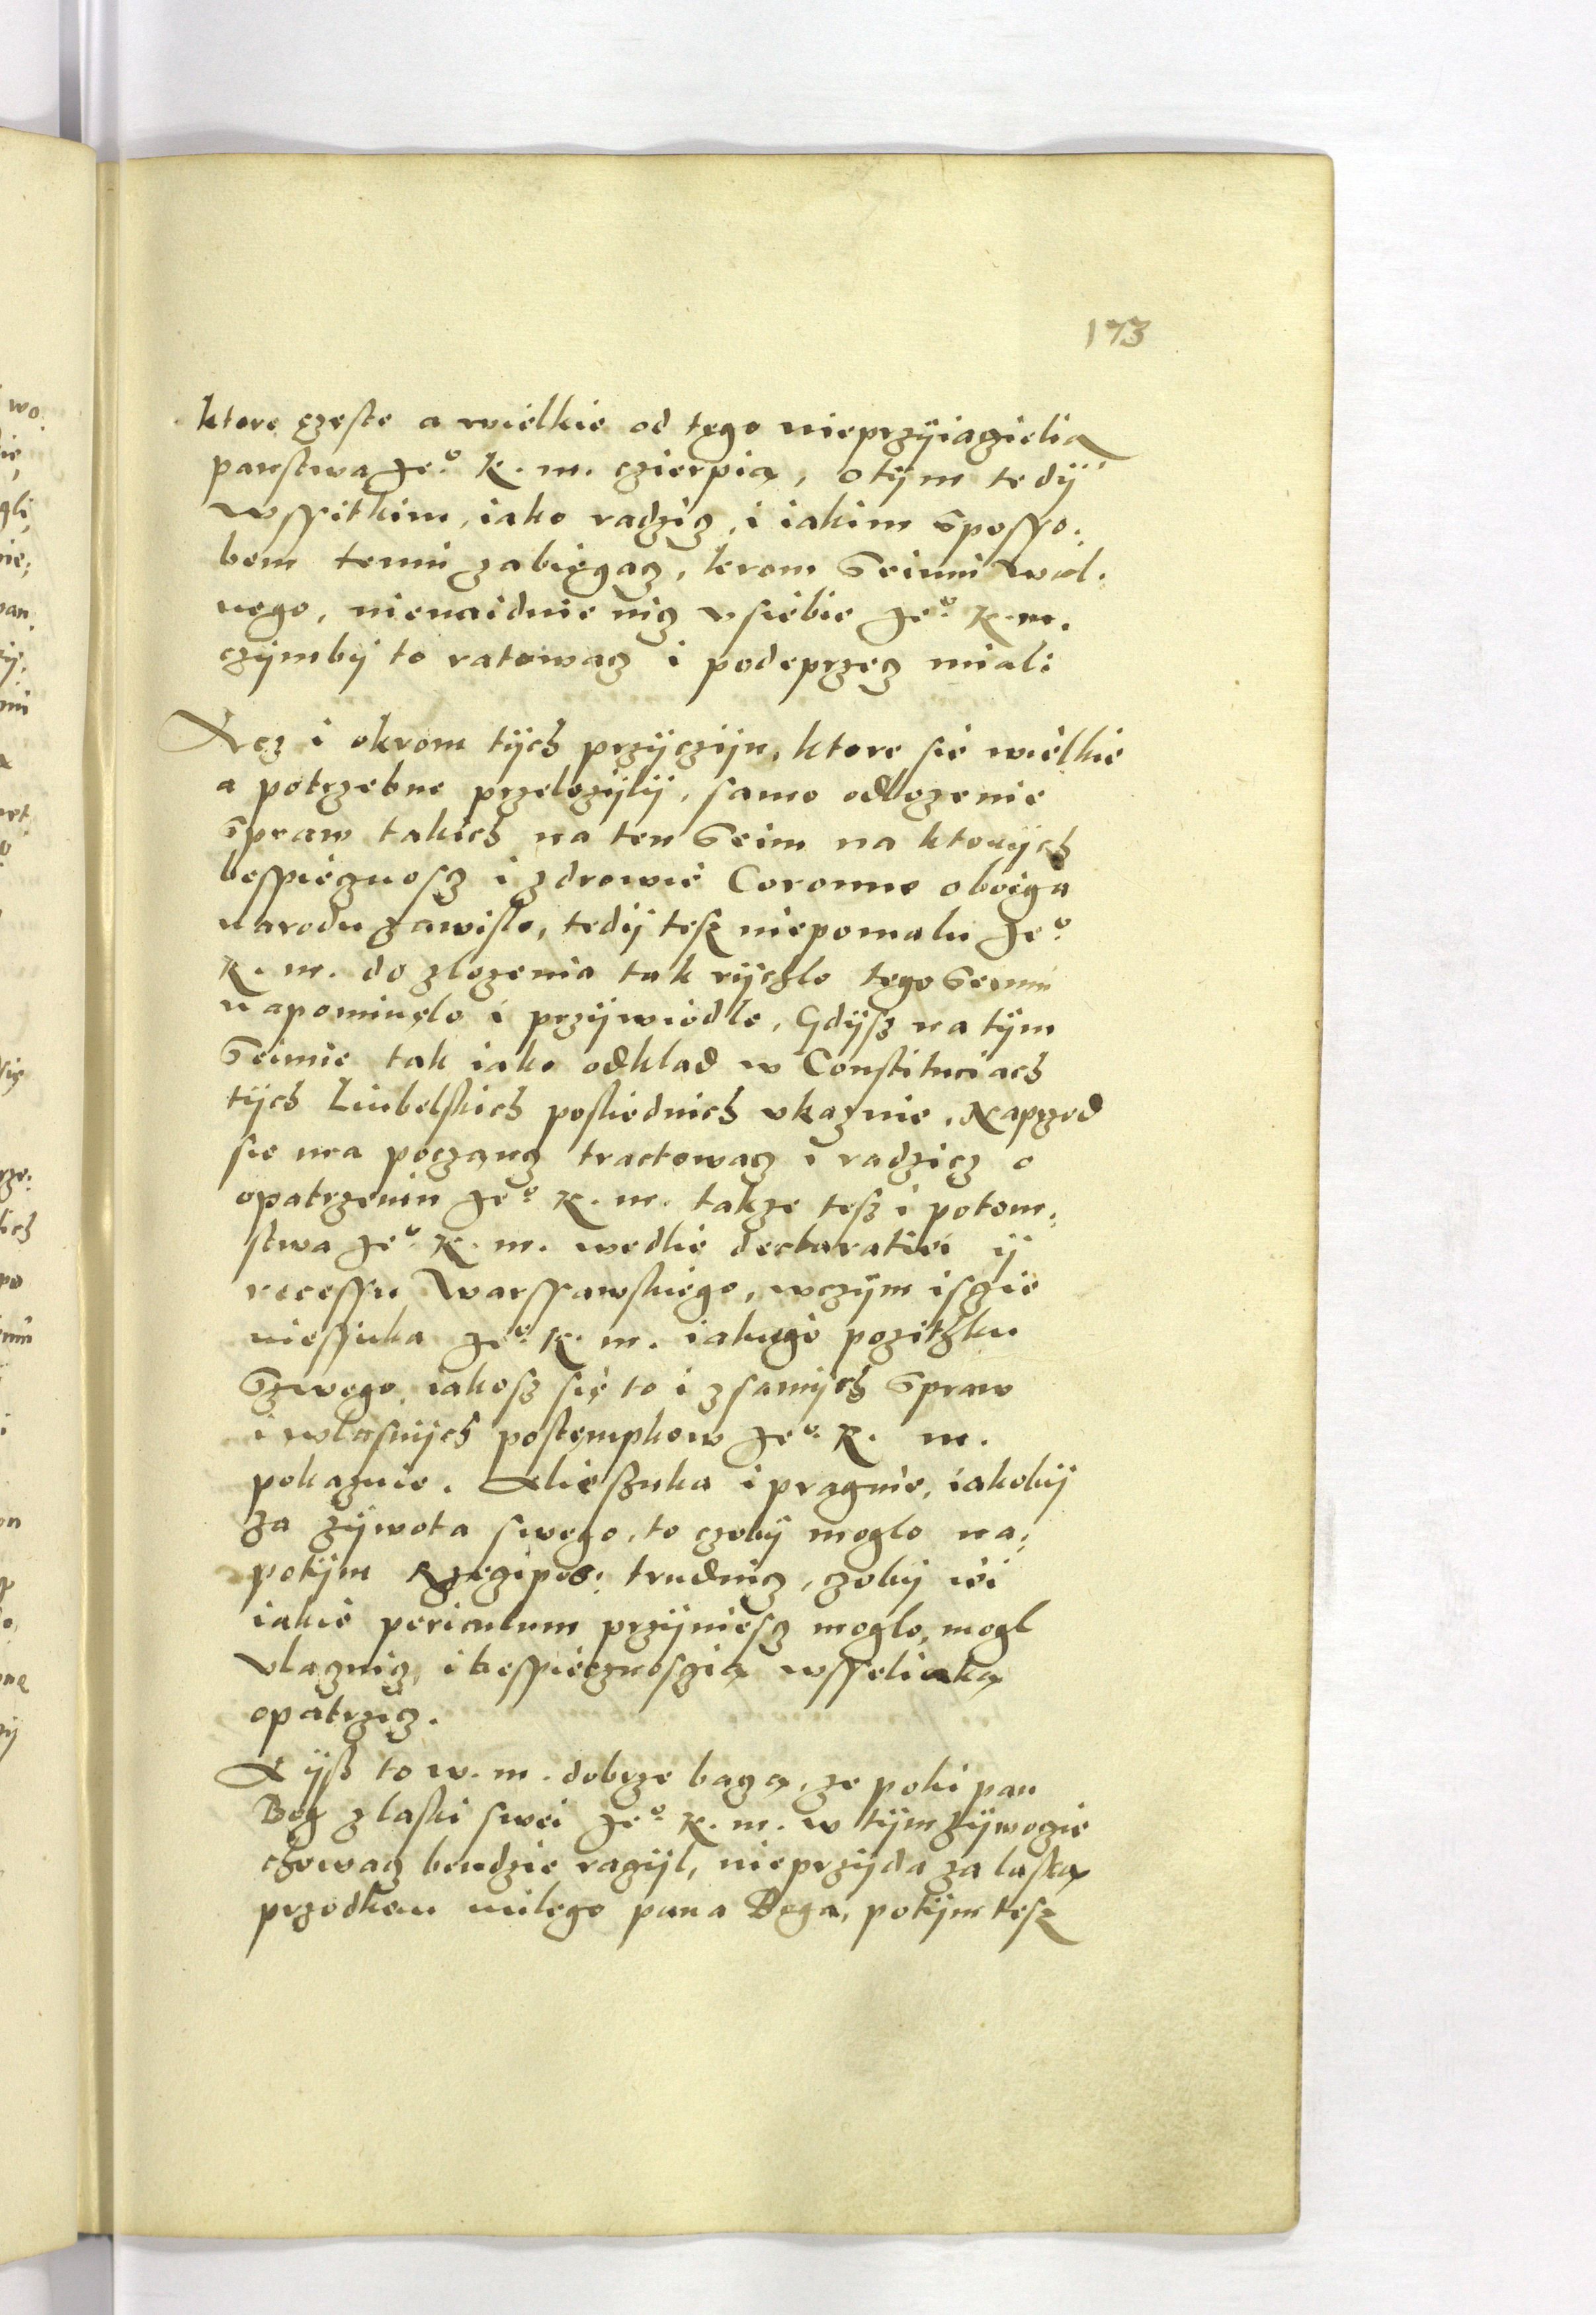 173
ktore czeste a wielkie od tego nieprzyiacielia
panstwa Jeº K. m. czierpia, o tÿm tedÿ
wssitkim, iako radzicz, i iakim sposso:
bem temu zabiegacz, krom Seimu wal:
nego, nienaidnie nicz v siebie Jeº K. m.
czÿmbÿ to ratowacz i podeprzecz miali
Acz i okrom tÿch przÿczÿn, ktore sie wielkie
a potrzebne przelozÿlÿ, samo odlozenie
spraw takich na ten Seim na ktorÿch
bespiecznoscz i zdrowie Coronne oboiga
narodu zawislo, tedÿ tesz niepomalu Jeº
K. m. do zlozenia tak rÿchlo tego Seimu
napominelo i przÿwiodlo, Gdÿsz na tÿm
Seimie tak iako odklad w Constituciach
tÿch Liubelskich posliednich vkazuie. Naprzod
sie ma poczancz tractowacz i radzicz o
opatrzeniu Jeº K. m. takze tesz i potom:
stwa Jeº K. m. wedlie declaratiei ÿ
recessu Warssawskiego, w czÿm isczie
niessuka Jeº K. m. iakugo pozitzku
Szwego, iakosz sie to i z samÿch spraw
i wlasnÿch postempkow Jeº K. m.
pokazuie. Alie szuka i pragnie, iakobÿ
za zÿwota swego, to czobÿ moglo na:
potÿm Rzeczipos: trudnicz, czobÿ iei
iakie periculum przÿniescz moglo, mogl
vlacznicz, i bespiecznosczia wsseliaka
opatrzicz.
A ÿsz to w. m. dobrze bacza, ze poki pan
Bog z laski swei Jeº K. m. w tÿm zÿwoczie
chowacz bendzie raczÿl, nieprzÿda za laska
przodkow milego pana Boga, potÿm tesz